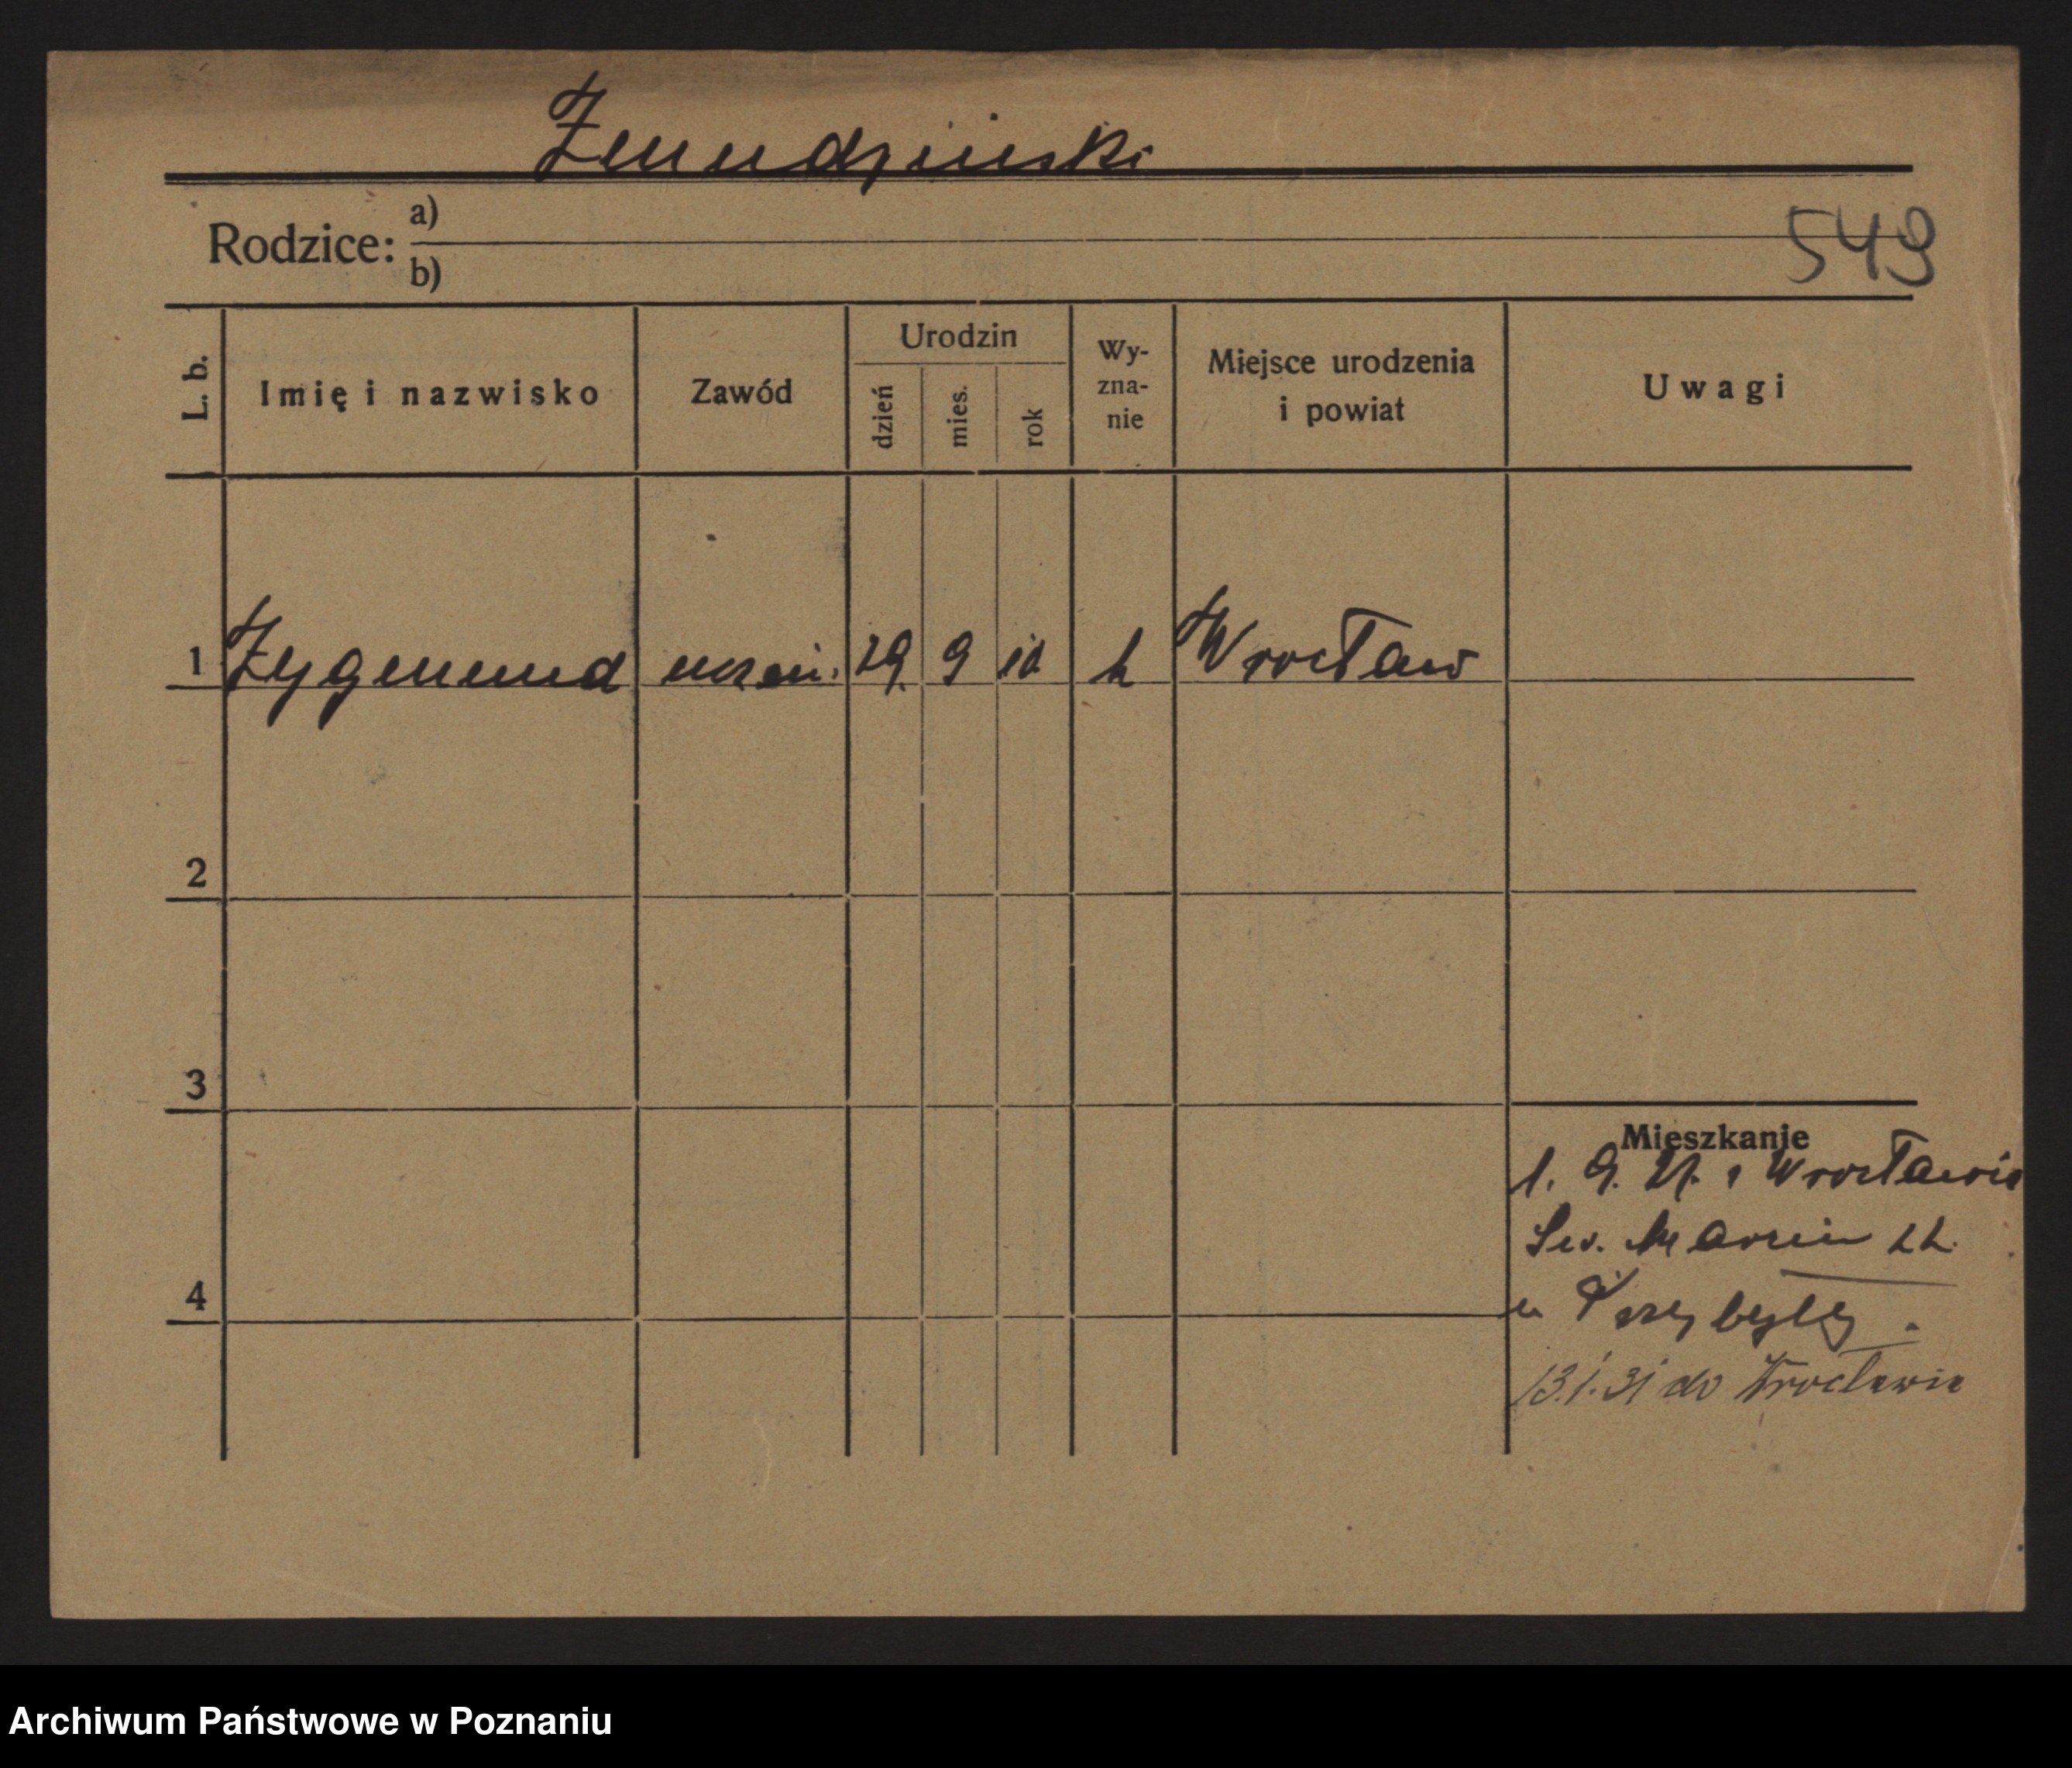 Żmudziński
Rodzice: a)
b)
549
L. b.
Imię i nazwisko
Zawód
Urodzin
dzień
mies.
rok
Wy-
zna-
nie
Miejsce urodzenia
i powiat
Uwagi
1 Zygmund uczeń. 29. 9 k Wrocław
2
3
4
Mieszkanie
1. 9. z Wrocławia
Św. Marcin 22
u Przybyły.
13.1.31 do Wrocławia
Archiwum Państwowe w Poznaniu